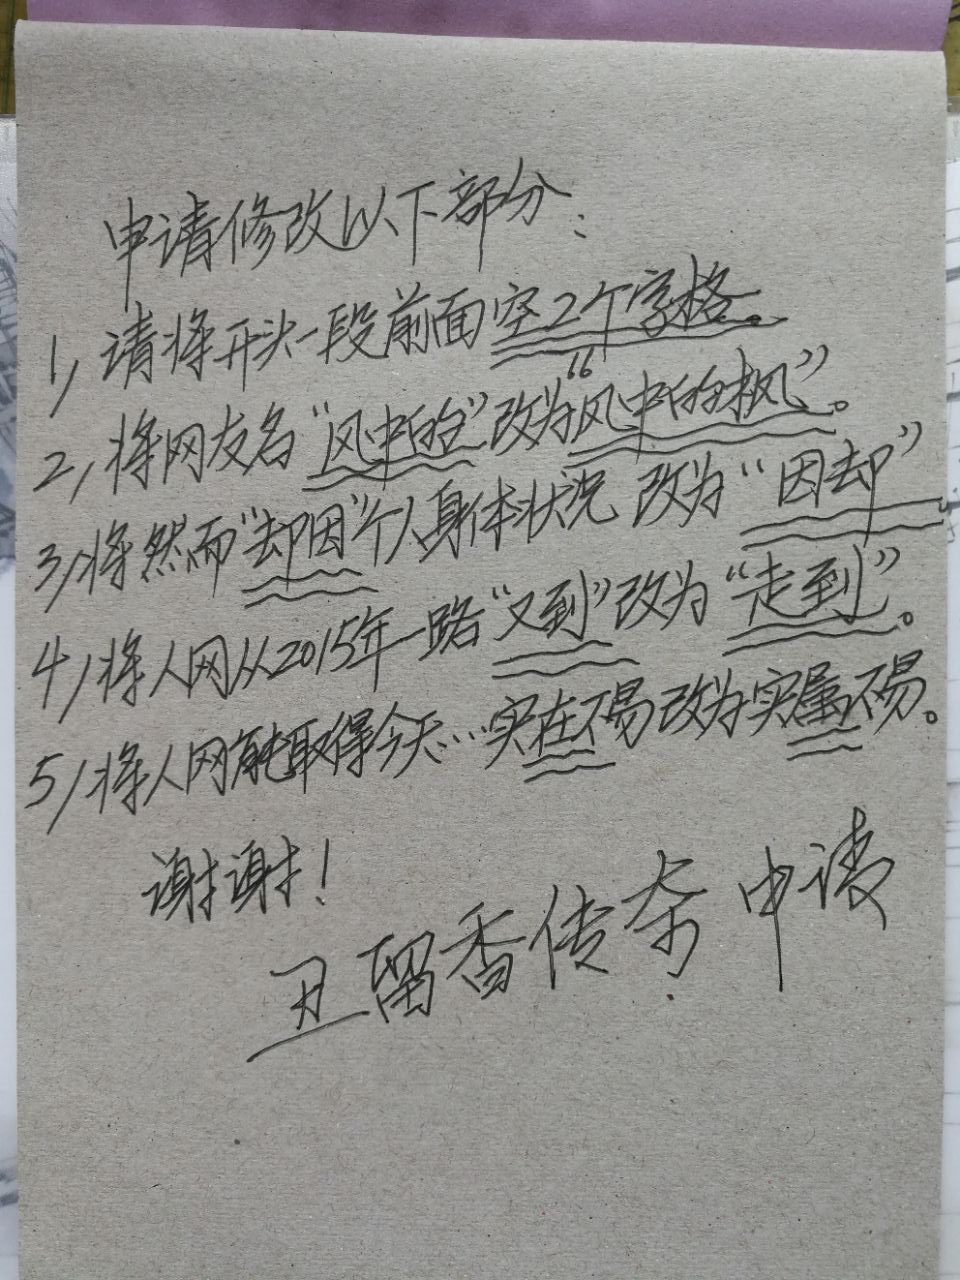 申请修改以下部分：
1，请将开头一段前面空2个字格。
2，将网友名“风中的”改为“风中的枫”。
3，将然而“却因”个人身体状况 改为“因却”
4，将人网从2015年一路“又到”改为“走到”。
5，将人网能取得今天…实在不易改为实属不易。
谢谢！
丑留香传奇 申请